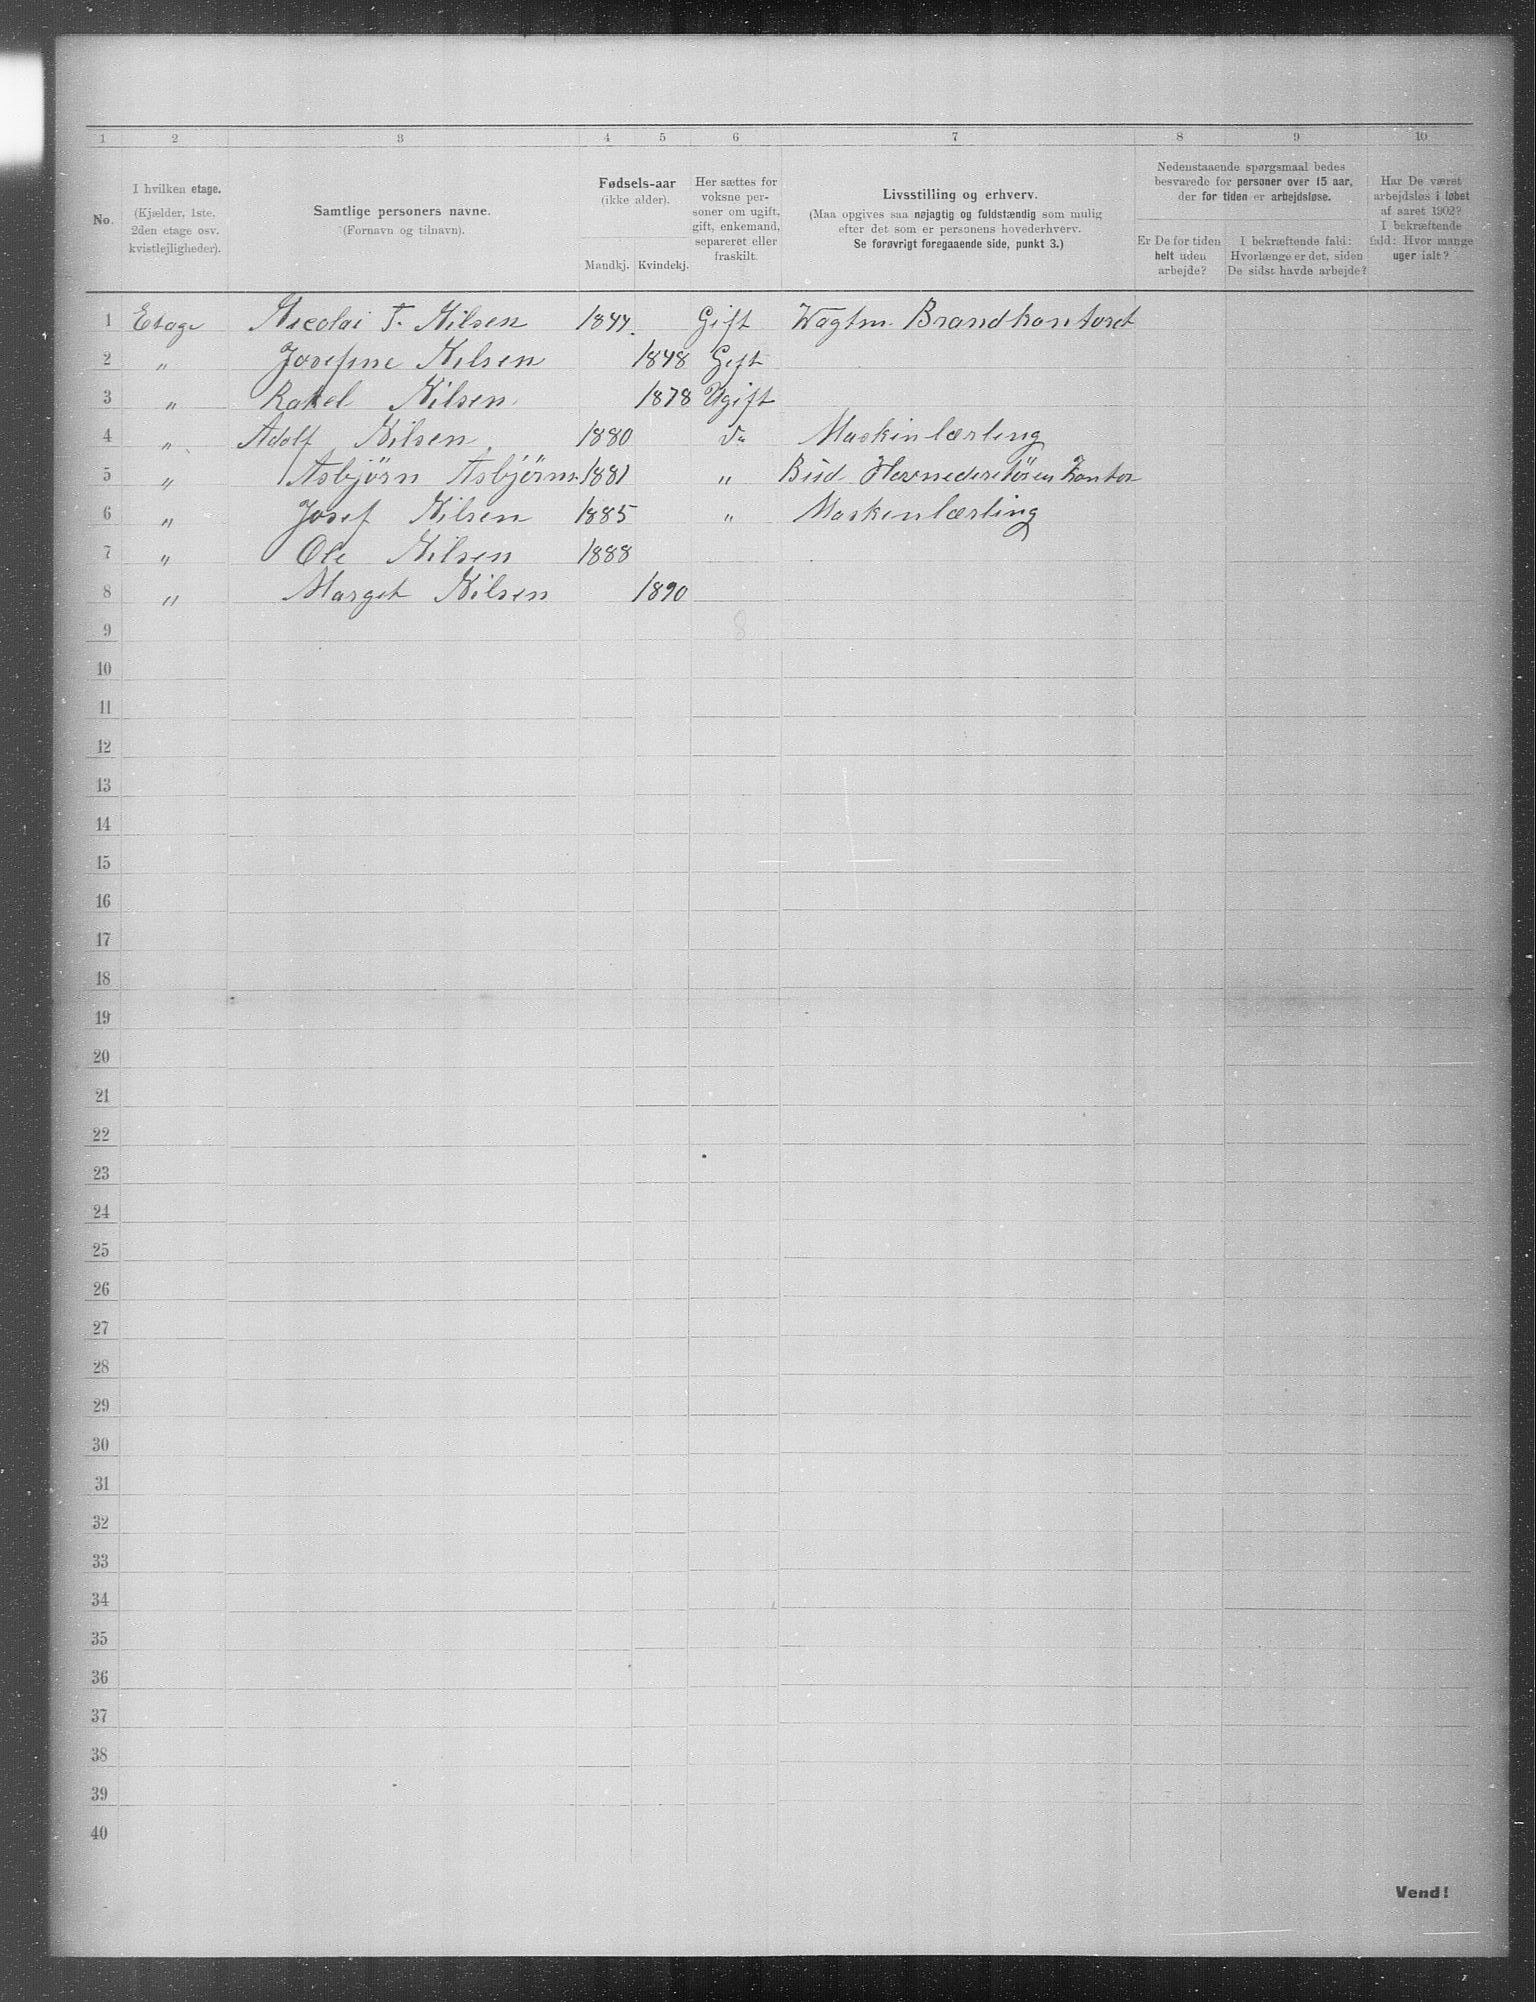 1 2 3 4 5 6 7 8 9 10
No.
I hvilken etage.
(Kjælder, 1ste,
2den etage osv.
kvistlejligheder).
Samtlige personers navne.
(Fornavn og tilnavn).
Fødsels-aar
(ikke alder).
Mandkj. Kvindekj.
Her sættes for
voksne per-
soner om ugift,
gift, enkemand,
separeret eller
fraskilt.
Livsstilling og erhverv.
(Maa opgives saa nøjagtig og fuldstændig som mulig
efter det som er personens hovederhverv.
Se forøvrigt foregaaende side, punkt 3.)
Nedenstaaende spørgsmaal bedes
besvarede for personer over 15 aar,
der for tiden er arbejdsløse.
Er De for tiden
helt uden
arbejde?
I bekræftende fald:
Hvorlænge er det, siden
De sidst havde arbejde?
Har De været
arbejdsløs i løbet
af aaret 1902?
I bekræftende
fald: Hvor mange
uger ialt?
1 Etage Nicolai T. Nilsen 1844. Gift Vagtm. Brandkontoret
2 " Josefine Nilsen 1848 Gift
3 " Rakel Nilsen 1878 Ugift
4 " Adolf Nilsen 1880 Do Maskinlærling
5 " Asbjörn Asbjörns. 1881 " Bud Havnedirektören Kontor
6 " Josef Nilsen 1885 " Maskinlærling
7 " Ole Nilsen 1888
8 " Marget Nilsen 1890
9 8
10
11
12
13
14
15
16
17
18
19
20
21
22
23
24
25
26
27
28
29
30
31
32
33
34
35
36
37
38
39
40
Vend!